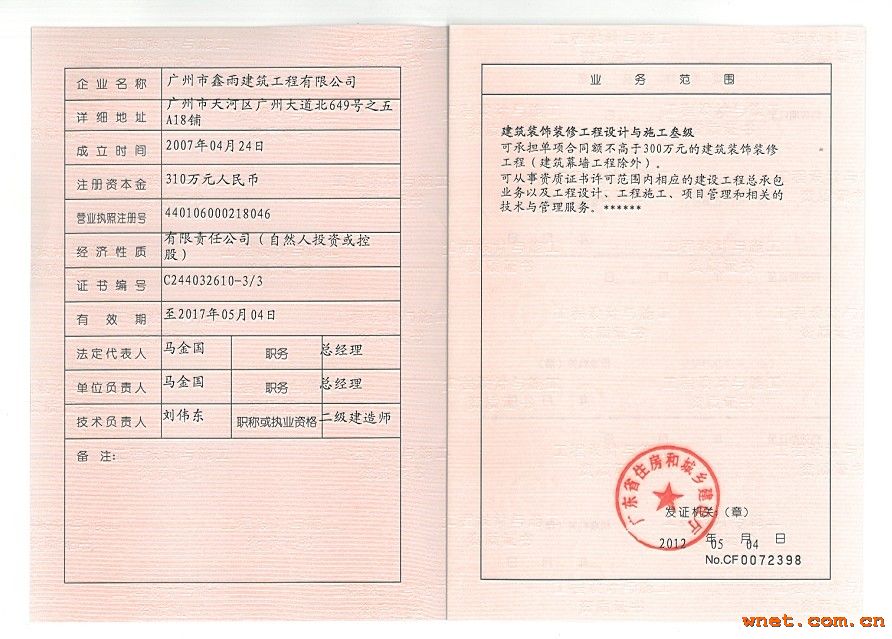 企业名称 广州市鑫雨建筑工程有限公司
详细地址 广州市天河区广州大道北649号之五
A18铺
成立时间 2007年04月24日
注册资本金 310万元人民币
营业执照注册号 440106000218046
经济性质 有限责任公司（自然人投资或控
股）
证书编号 C244032610-3/3
有效期 至2017年05月04日
法定代表人 马金国 职务 总经理
单位负责人 马金国 职务 总经理
技术负责人 刘伟东 职称或执业资格 二级建造师
备注：
业务范围
建筑装饰装修工程设计与施工叁级
可承担单项合同额不高于300万元的建筑装饰装修
工程（建筑幕墙工程除外）。
可从事资质证书许可范围内相应的建设工程总承包
业务以及工程设计、工程施工、项目管理和相关的
技术与管理服务。******
广东省住房和城乡建设厅
发证机关：（章）
2012年05月04日
No.CF0072398
wnet.com.cn